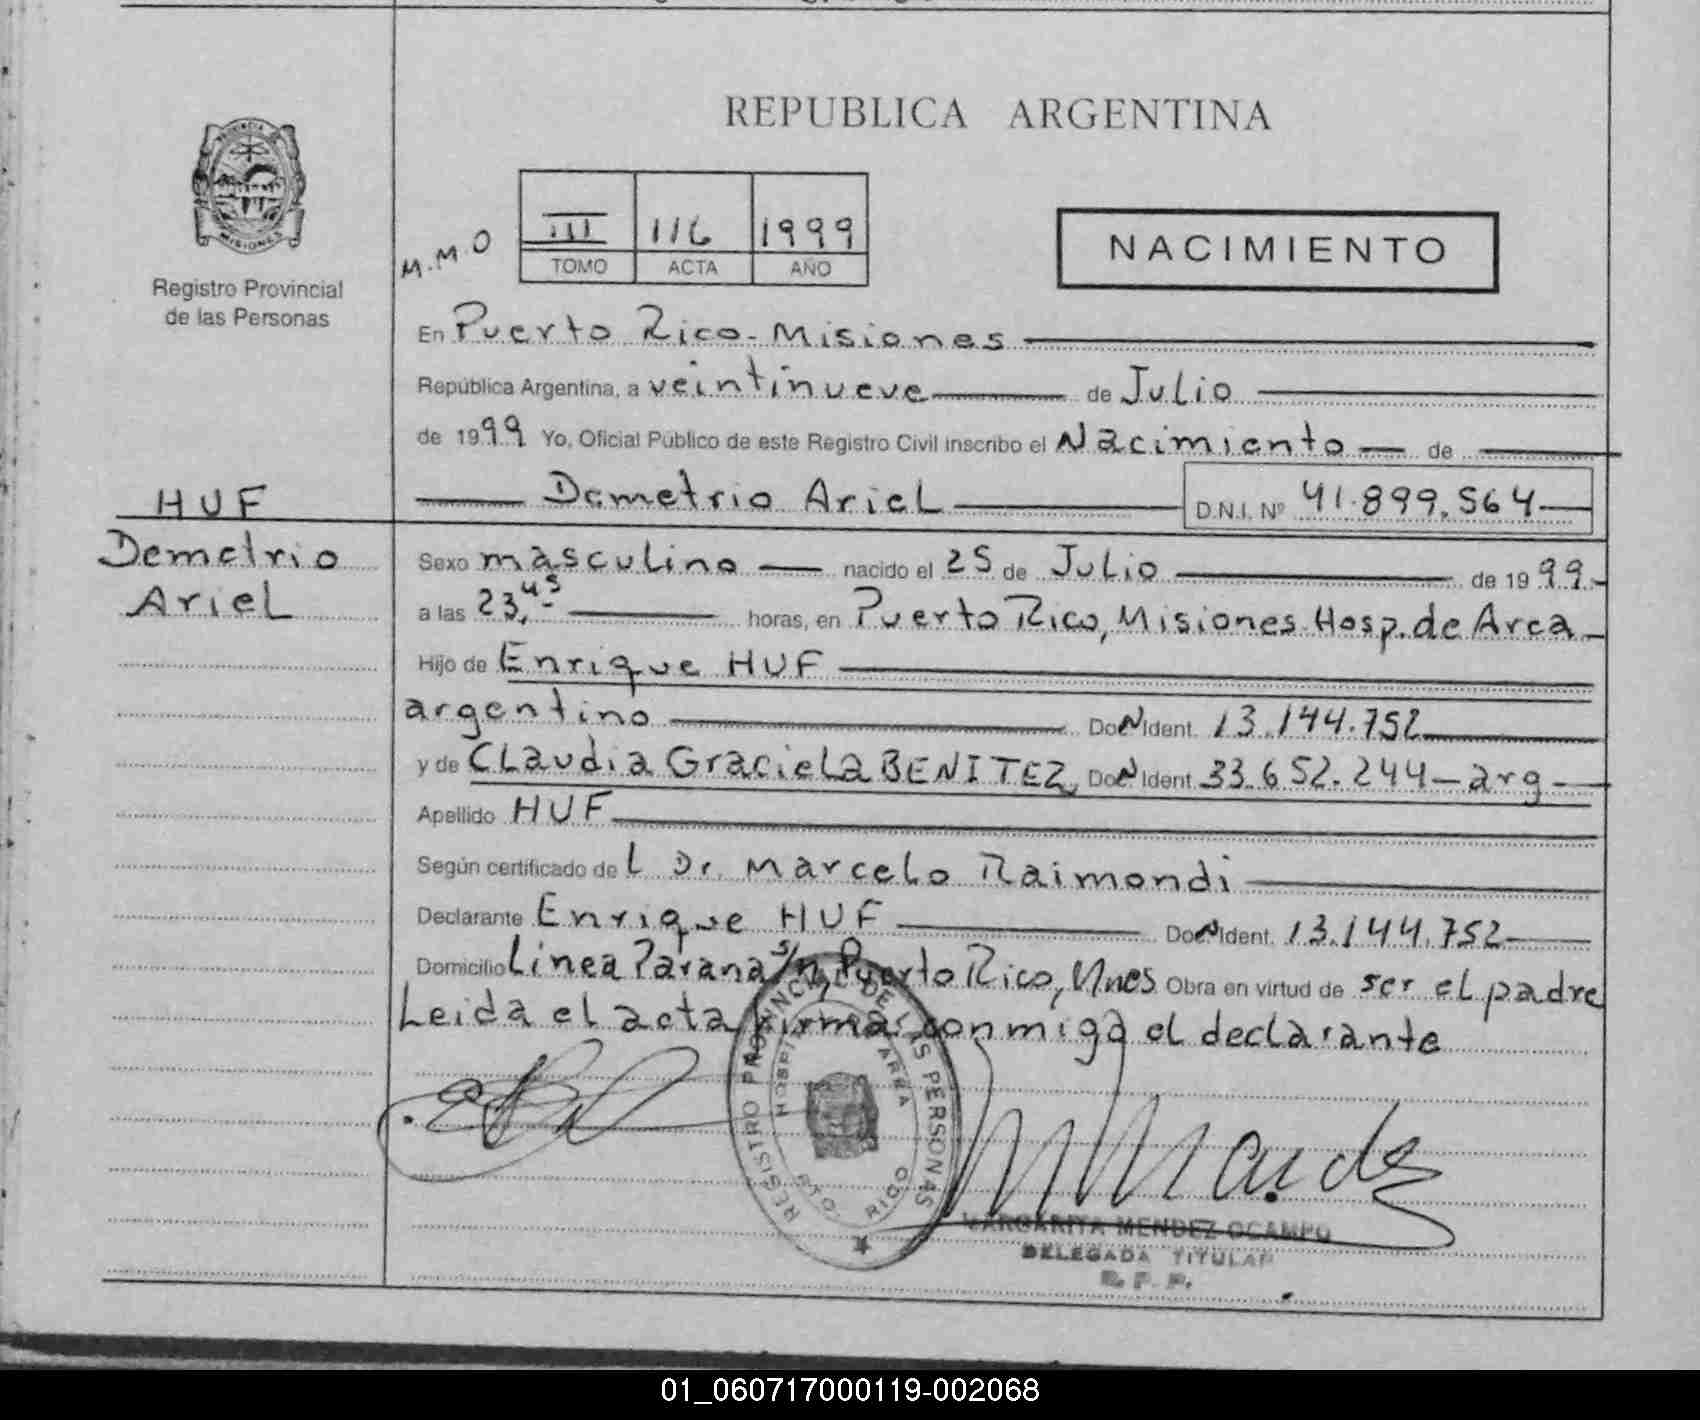 REPUBLICA ARGENTINA
PROVINCIA DE
MISIONES
Registro Provincial
de las Personas
M.M.O
III 116 1999
TOMO ACTA AÑO
NACIMIENTO
En Puerto Rico - Misiones
República Argentina, a veintinueve de Julio
de 1999 Yo, Oficial Público de este Registro Civil inscribo el Nacimiento de
Demetrio Ariel D.N.I. Nº 41.899.564
HUF
Demetrio
Ariel
Sexo masculino nacido el 25 de Julio de 1999
a las 23,45 horas, en Puerto Rico, Misiones Hosp. de Area
Hijo de Enrique HUF
argentino Doc. N Ident. 13.144.752
y de Claudia Graciela BENITEZ, Doc. N Ident. 33.652.244 - arg
Apellido HUF
Según certificado de L Dr. Marcelo Raimondi
Declarante Enrique HUF Doc. N Ident. 13.144.752
Domicilio Línea Parana s/n, Puerto Rico, Mnes Obra en virtud de ser el padre
Leida el acta firma conmigo el declarante
REGISTRO PROVINCIAL DE LAS PERSONAS
HOSPITAL AREA
PTO. RICO
MARGARITA MENDEZ OCAMPO
DELEGADA TITULAR
R. P. P.
01_060717000119-002068